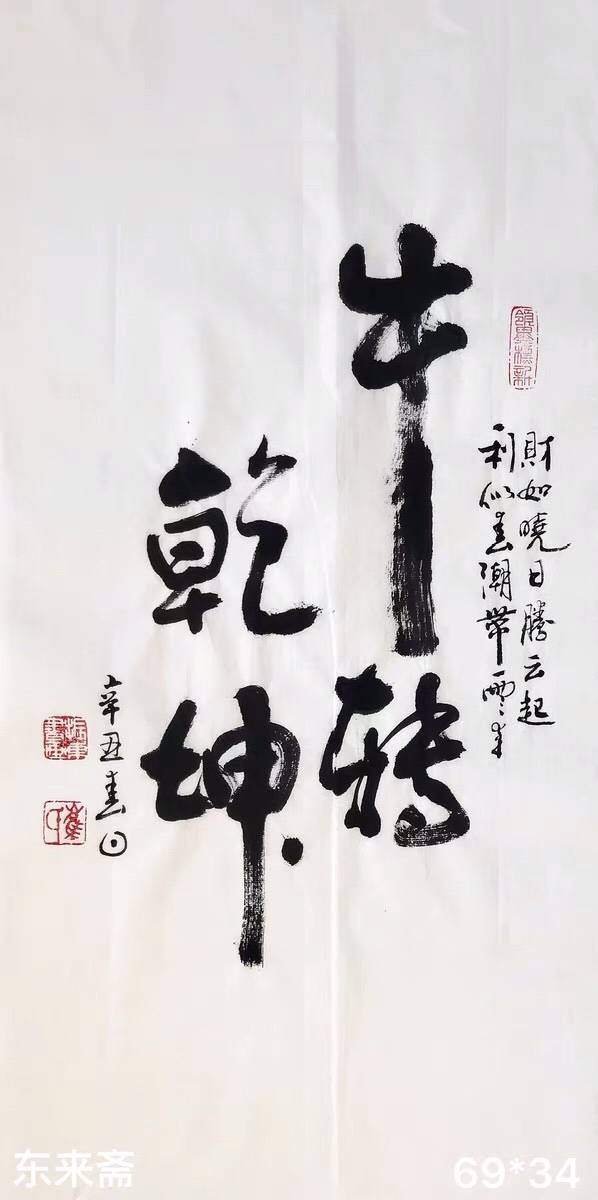 牛转
乾坤
財如曉日騰云起
利似春潮帶雨来
辛丑春日
东来斋
69*34